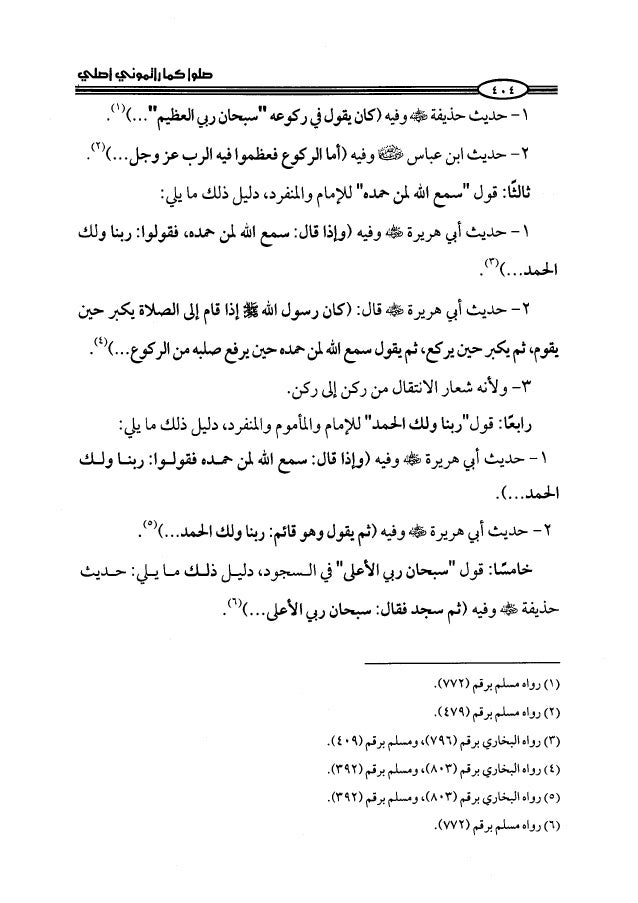 صلوا كما رأيتموني أصلي
٤٠٤
١- حديث حذيفة ﷺ وفيه (كان يقول في ركوعه "سبحان ربي العظيم"...)(١).
٢- حديث ابن عباس وفيه (أما الركوع فعظموا فيه الرب عز وجل...)(٢).
ثالثًا: قول "سمع الله لمن حمده" للإمام والمنفرد، دليل ذلك ما يلي:
١- حديث أبي هريرة وفيه (وإذا قال: سمع الله لمن حمده، فقولوا: ربنا ولك
الحمد...)(٣).
٢- حديث أبي هريرة قال: (كان رسول الله ﷺ إذا قام إلى الصلاة يكبر حين
يقوم، ثم يكبر حين يركع، ثم يقول سمع الله لمن حمده حين يرفع صلبه من الركوع...)(٤).
٣- ولأنه شعار الانتقال من ركن إلى ركن.
رابعًا: قول"ربنا ولك الحمد" للإمام والمأموم والمنفرد، دليل ذلك ما يلي:
١- حديث أبي هريرة وفيه (وإذا قال: سمع الله لمن حمده فقولوا: ربنا ولك
الحمد...).
٢- حديث أبي هريرة وفيه (ثم يقول وهو قائم: ربنا ولك الحمد...)(٥).
خامسًا: قول "سبحان ربي الأعلى" في السجود، دليل ذلك ما يلي: حديث
حذيفة وفيه (ثم سجد فقال: سبحان ربي الأعلى...)(٦).
(١) رواه مسلم برقم (٧٧٢).
(٢) رواه مسلم برقم (٤٧٩).
(٣) رواه البخاري برقم (٧٩٦)، ومسلم برقم (٤٠٩).
(٤) رواه البخاري برقم (٨٠٣)، ومسلم برقم (٣٩٢).
(٥) رواه البخاري برقم (٨٠٣)، ومسلم برقم (٣٩٢).
(٦) رواه مسلم برقم (٧٧٢).